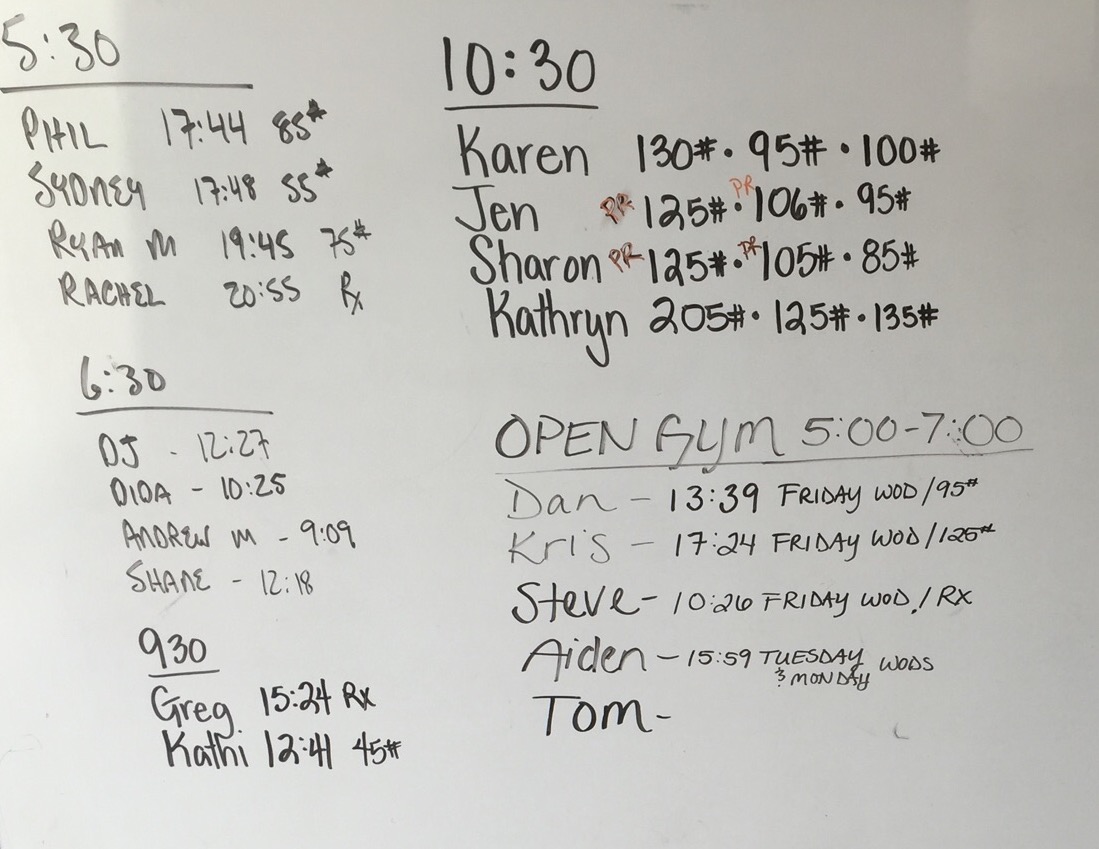 5:30
PHIL 17:44 85#
SYDNEY 17:48 55#
RYAN M 19:45 75#
RACHEL 20:55 Rx
6:30
DJ - 12:27
DIDA - 10:25
ANDREW M - 9:09
SHANE - 12:18
930
Greg 15:24 Rx
Kathi 12:41 45#
10:30
Karen 130# · 95# · 100#
Jen PR 125# · PR 106# · 95#
Sharon PR 125# · PR 105# · 85#
Kathryn 205# · 125# · 135#
OPEN GYM 5:00-7:00
Dan - 13:39 FRIDAY WOD/95#
Kris - 17:24 FRIDAY WOD/125#
Steve - 10:26 FRIDAY WOD/RX
Aiden - 15:59 TUESDAY & MONDAY WODS
Tom -